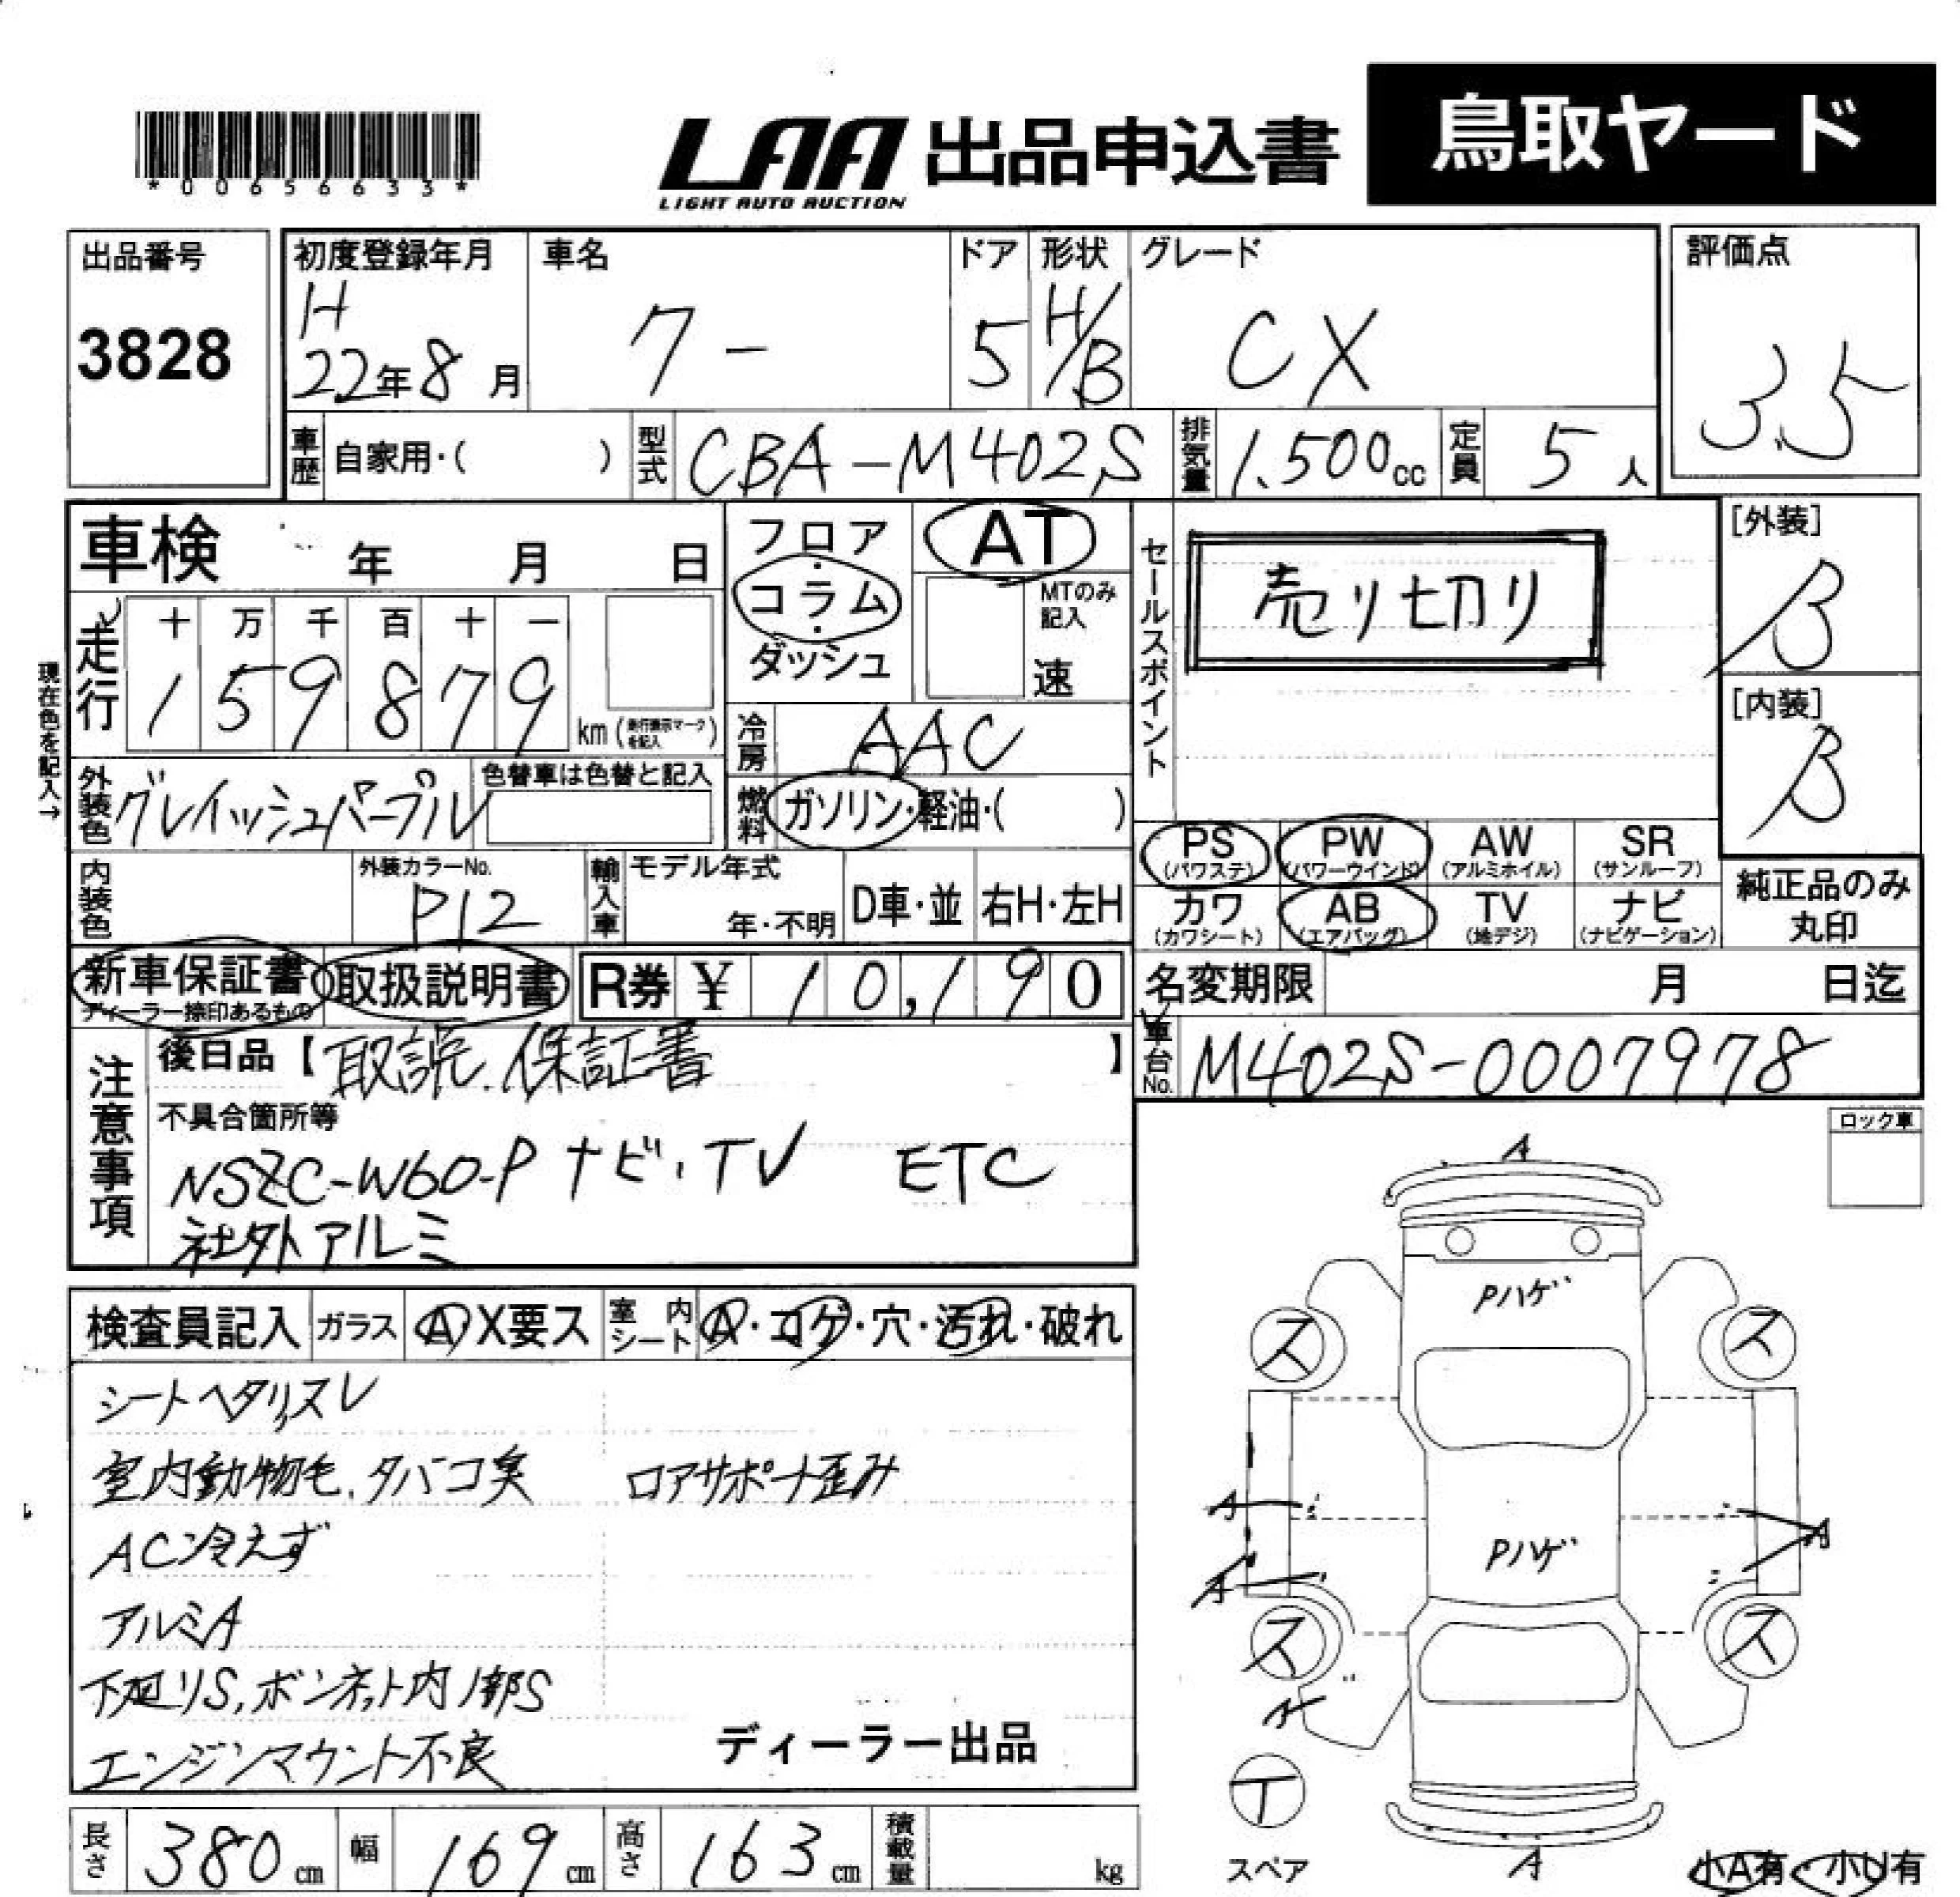 *00656633*
LAA 出品申込書 鳥取ヤード
LIGHT AUTO AUCTION
出品番号 3828
初度登録年月 H22年8月
車名 クー
ドア 5
形状 H/B
グレード CX
評価点 3.5
車歴 自家用・( )
型式 CBA-M402S
排気量 1.500cc
定員 5人
車検 年 月 日
フロア・コラム・ダッシュ
AT
MTのみ記入 速
セールスポイント 売り切り
[外装] B
[内装] B
現在色を記入→
走行 十 万 千 百 十 一
159879 km (走行表示マークを記入)
冷房 AAC
外装色 グレイッシュパープル
色替車は色替と記入
燃料 ガソリン・軽油・( )
PS (パワステ) PW (パワーウインド) AW (アルミホイル) SR (サンルーフ)
カワ (カワシート) AB (エアバッグ) TV (地デジ) ナビ (ナビゲーション)
純正品のみ丸印
内装色
外装カラーNo. P12
輸入車 モデル年式 年・不明 D車・並 右H・左H
新車保証書 ディーラー捺印あるもの
取扱説明書
R券 ¥ 10,190
名変期限 月 日迄
車台No. M402S-0007978
注意事項
後日品【取説、保証書】
不具合箇所等
NSZC-W60-P ナビ、TV ETC
社外アルミ
ロック車
検査員記入 ガラス A X要ス 室内シート A・コゲ・穴・汚れ・破れ
シートヘタリ、スレ
室内動物毛、タバコ臭 ロアサポート歪み
AC冷えず
アルミA
下廻りS、ボンネット内1部S
エンジンマウント不良
ディーラー出品
A
Pハゲ
ス ス
A
Pハゲ
A
A
ス ス
A
T
スペア
A
小A有・小U有
長さ 380cm 幅 169cm 高さ 163cm 積載量 kg